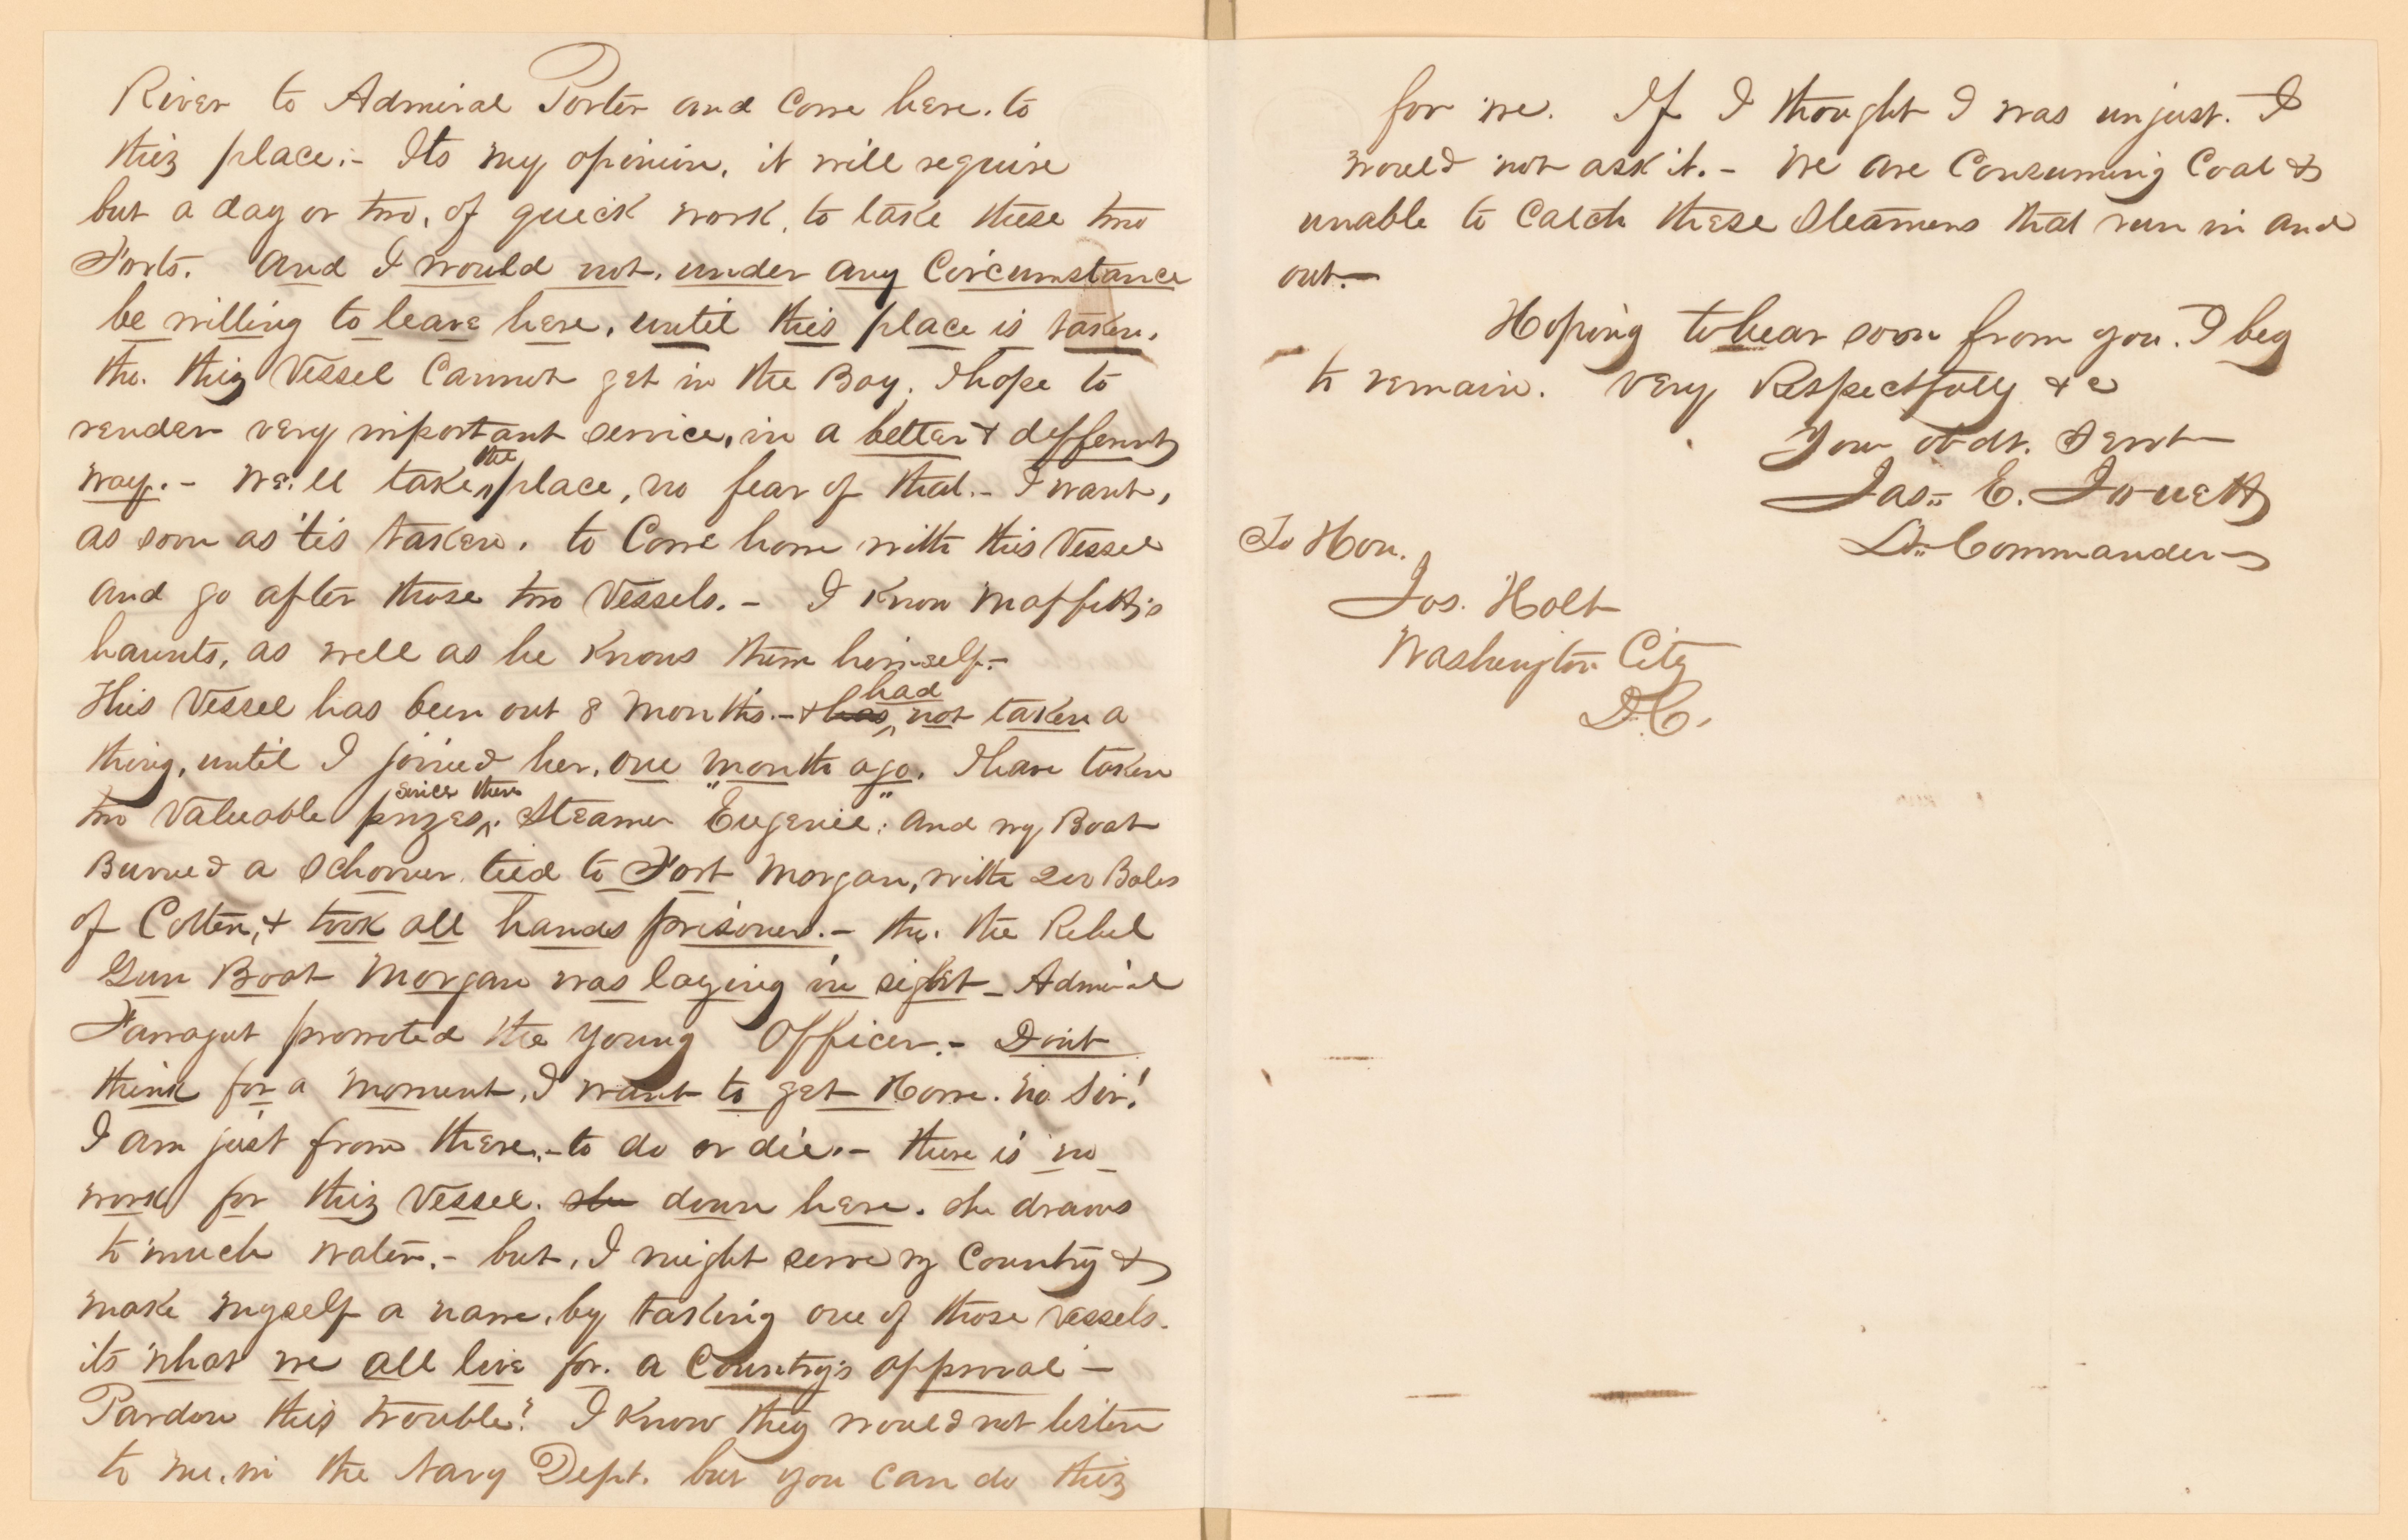 River to Admiral Porter and Come here. to
this place.- Its my opinion, it will require
but a day or two, of quick work, to take these two
Forts. And I would not, under any Circumstance
be willing to leave here, until this place is taken,
tho. this Vessel Cannot get in the Bay. I hope to
render very important service, in a better & different
way.- We.ll take the place, no fear of that.- I want,
as soon as 'tis taken, to Come home with this Vessel
and go after those two Vessels.- I know Maffitt's
haunts, as well as he knows them himself.-
This Vessel has been out 8 months.- & has had not taken a
thing, until I joined her, one month ago. I have taken
two Valuable prizes since then. Steamer "Eugenie": and my Boat
Burned a Schooner tied to Fort Morgan, with 200 Bales
of Cotten, & took all hands prisoners.- tho. the Rebel
Gun Boat Morgan was laying in sight - Admiral
Farragut promoted the young Officer.- Dont
think for a moment, I want to get Home. no Sir!
I am just from there,- to do or die.- there is no
work for this Vessel. she down here. she draws
to much water.- but, I might serve my Country &
make myself a name, by taking one of those vessels.
its what we all live for. a Country's approval -
Pardon this trouble? I know they would not listen
to me, in the Navy Dept. but you can do this
for me. If I thought I was unjust. I
would not ask it.- We are Consuming Coal &
unable to Catch these Steamers that run in and
out.-
Hoping to hear soon from you. I beg
to remain. Very Respectfully &c
Your obdt. Servt
Jas. E. Jouett
Lt. Commander
To Hon.
Jos. Holt
Washington City
D.C.